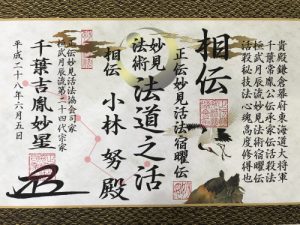 貴殿鎌倉幕府東海道大将軍
千葉常胤公伝承家伝活殺
極武月辰流妙見法術宿曜伝
活殺秘技法心魂高度修得也
相伝
正伝妙見活法宿曜伝
妙見法術
法道之活
相伝
小林努殿
正伝妙見活法協会司家
極武月辰流第二十四代宗家
千葉古胤妙星
平成二十八年六月五日